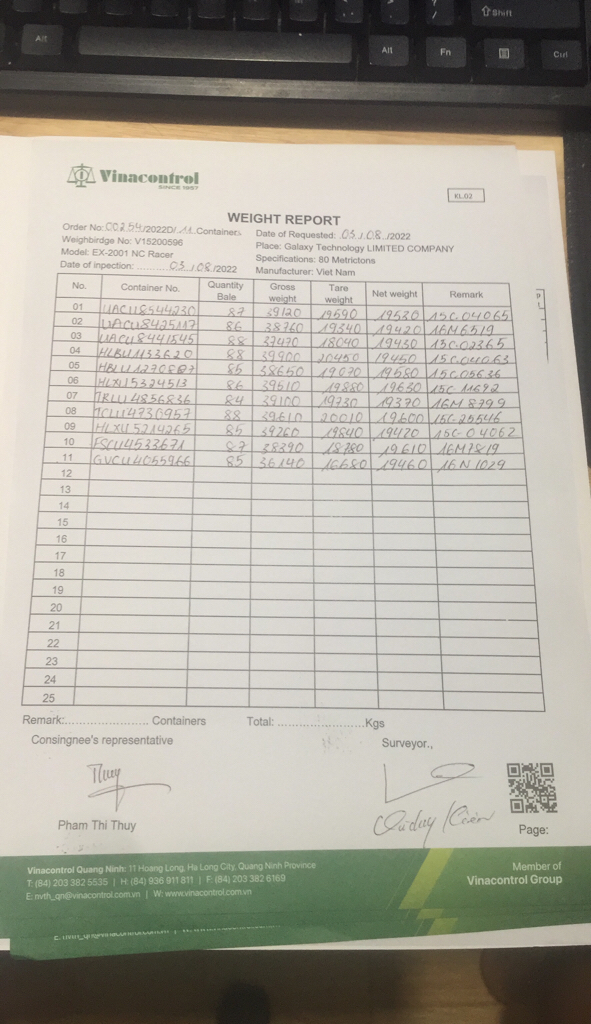 Shift
Alt
Alt
Fn
Ctrl
Vinacontrol
SINCE 1957
KL.02
WEIGHT REPORT
Order No: 00254/2022D/ 11 Containers
Date of Requested: 03/08/2022
Weighbirdge No: V15200596
Place: Galaxy Technology LIMITED COMPANY
Model: EX-2001 NC Racer
Specifications: 80 Metrictons
Date of inpection: 03/08/2022
Manufacturer: Viet Nam
No. Container No. Quantity Bale Gross weight Tare weight Net weight Remark
01 UACU8544230 87 39120 19590 19530 15C.04065
02 UACU8425117 86 38760 19340 19420 16M6519
03 UACU8441545 88 37470 18040 19430 15C.02365
04 HLBU1433620 88 39900 20450 19450 15C.04063
05 85 38650 19070 19580 15C.05636
06 HLXU5324513 86 39510 19880 19630 15C 11692
07 TRLU4856836 84 39100 19730 19370 16M8799
08 TCLU4730957 88 39610 20010 19600 15C.25546
09 HLXU5214265 85 39260 19840 19420 15C-04062
10 FSCU4533671 87 38390 18780 19610 16M7819
11 GVCU4055966 85 36140 16680 19460 16N 1029
12
13
14
15
16
17
18
19
20
21
22
23
24
25
Remark:.................... Containers Total: .....................Kgs
Consingnee's representative
Surveyor.,
Thuy
Pham Thi Thuy
Page:
Vinacontrol Quang Ninh: 11 Hoang Long, Ha Long City, Quang Ninh Province
T: (84) 203 382 5535 | H: (84) 936 911 811 | F: (84) 203 382 6169
E: nvth_qn@vinacontrol.com.vn | W: www.vinacontrol.com.vn
Member of
Vinacontrol Group